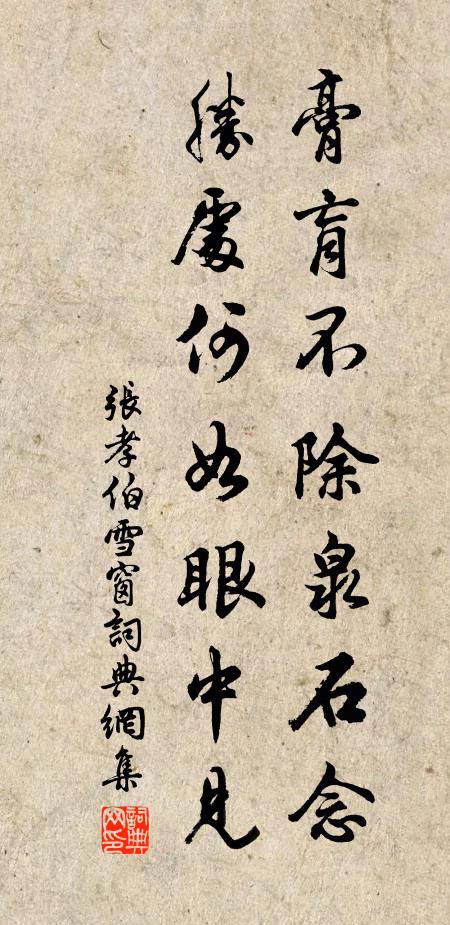 膏肓不除泉石念
勝處何如眼中見
張孝伯雪窗詞典網集
詞典網印